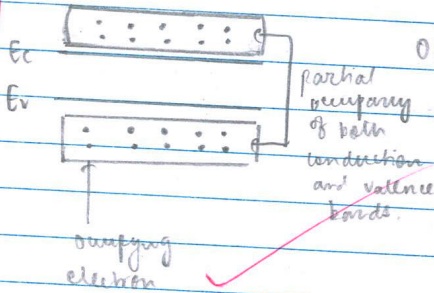 Ec
Ev
partial
occupancy
of both
conduction
and valence
bands.
occupying
electron